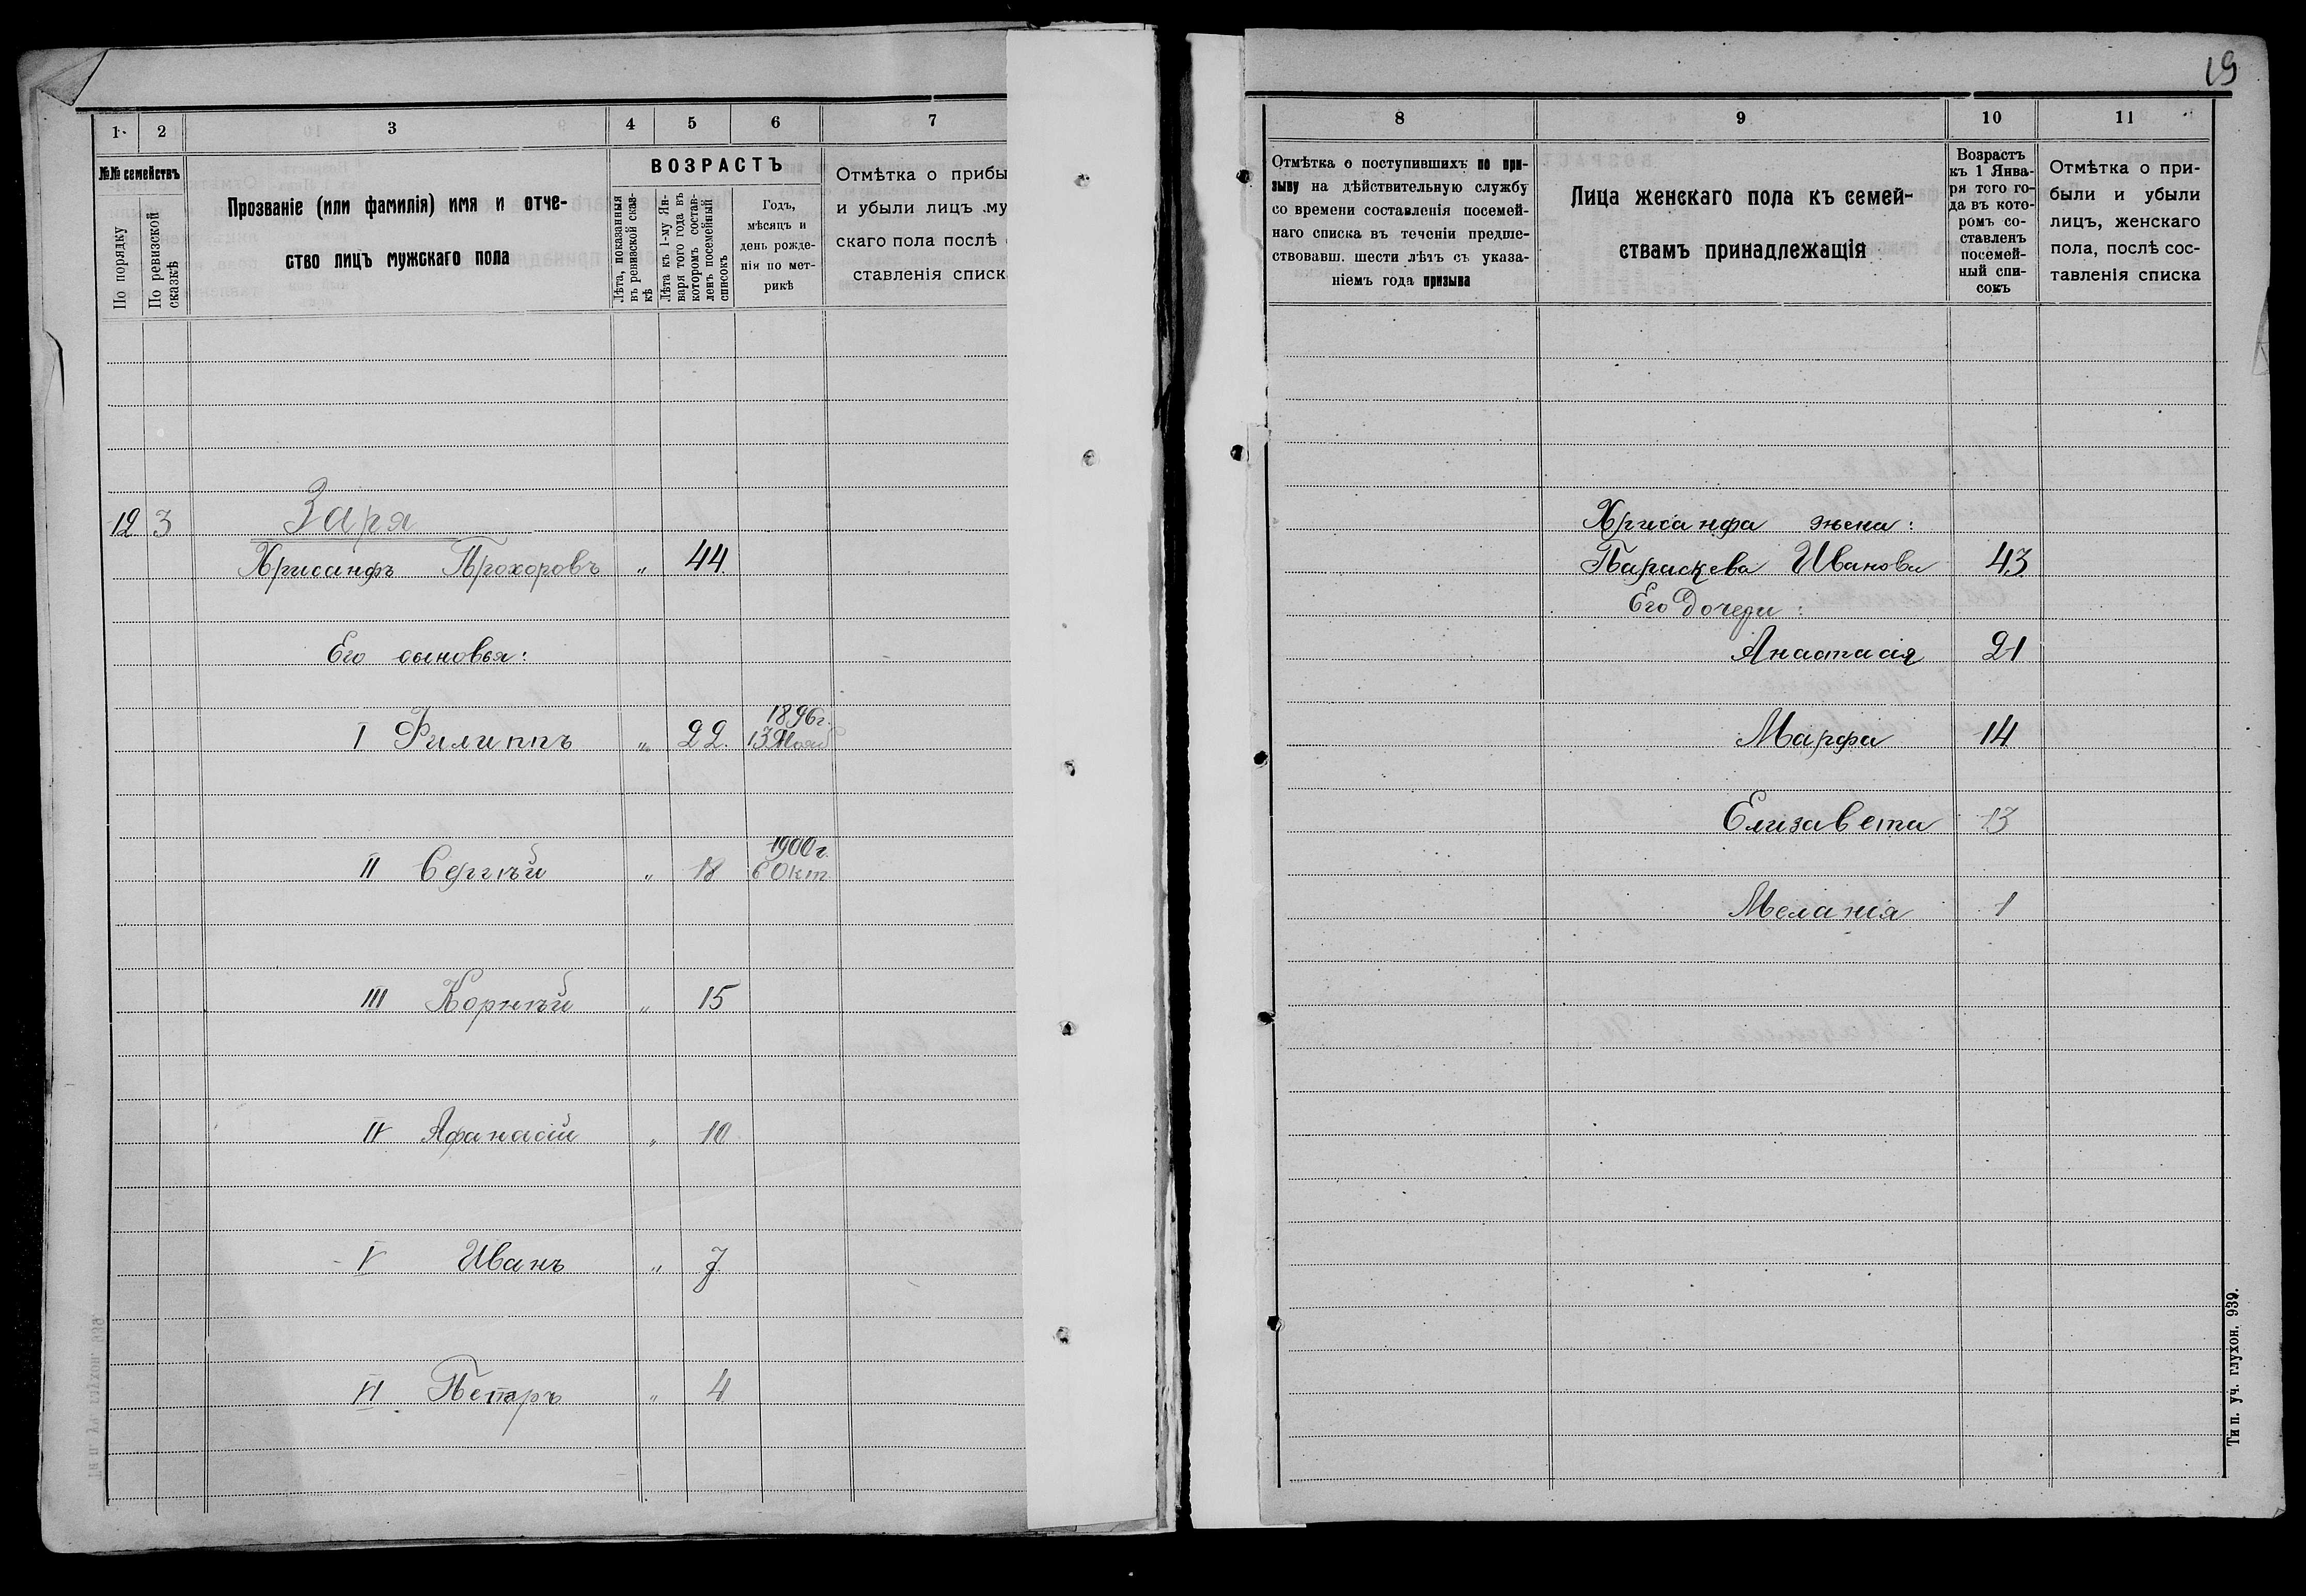 19
1 2 3 4 5 6 7
№№ семействъ
По порядку
По ревизской сказкѣ
Прозваніе (или фамилія) имя и отче-
ство лицъ мужскаго пола
ВОЗРАСТЪ
Лѣта, показанныя
въ ревизской сказ-
кѣ
Лѣта къ 1-му Ян-
варя того года въ
которомъ состав-
ленъ посемейный
списокъ
Годъ,
мѣсяцъ и
день рожде-
нія по мет-
рикѣ
Отмѣтка о прибы
и убыли лицъ му
скаго пола послѣ
ставленія списк
12 3 Заря
Хрисанфъ Прохоровъ „ 44.
Его сыновья:
1896 г.
I Филиппъ „ 22. 13 Нояб
1900 г.
II Сергѣй „ 18 6 Окт.
III Корнѣй „ 15
IV Афанасій „ 10
V Иванъ „ 7
VI Петръ „ 4
8 9 10 11
Отмѣтка о поступившихъ по при-
зыву на дѣйствительную службу
со времени составленія посемей-
наго списка въ теченіи предше-
ствовавш. шести лѣтъ съ указа-
ніемъ года призыва
Лица женскаго пола къ семей-
ствамъ принадлежащія
Возрастъ
къ 1 Янва-
ря того го-
да въ кото-
ромъ со-
ставленъ
посемей-
ный спи-
сокъ
Отмѣтка о при-
были и убыли
лицъ, женскаго
пола, послѣ сос-
тавленія списка
Хрисанфа жена:
Параскева Иванова 43
Его дочери:
Анастасія 21
Марфа 14
Елизавета 13
Меланія 1
Тип. уч. глухон. 939.